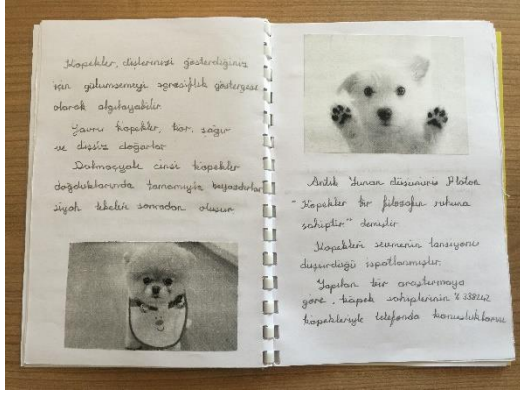 Köpekler, dişlerinizi gösterdiğiniz
için gülümsemeyi agresiflik göstergesi
olarak algılayabilir.
Yavru köpekler, kör, sağır
ve dişsiz doğarlar.
Dalmaçyalı cinsi köpekler
doğduklarında tamamıyla beyazdırlar
siyah lekeler sonradan oluşur
Antik Yunan düşünürü Platon
"Köpekler bir filozofun ruhuna
sahiptir" demiştir.
Köpekleri sevmenin tansiyonu
düşürdüğü ispatlanmıştır.
Yapılan bir araştırmaya
göre, köpek sahiplerinin
köpekleriyle telefonda